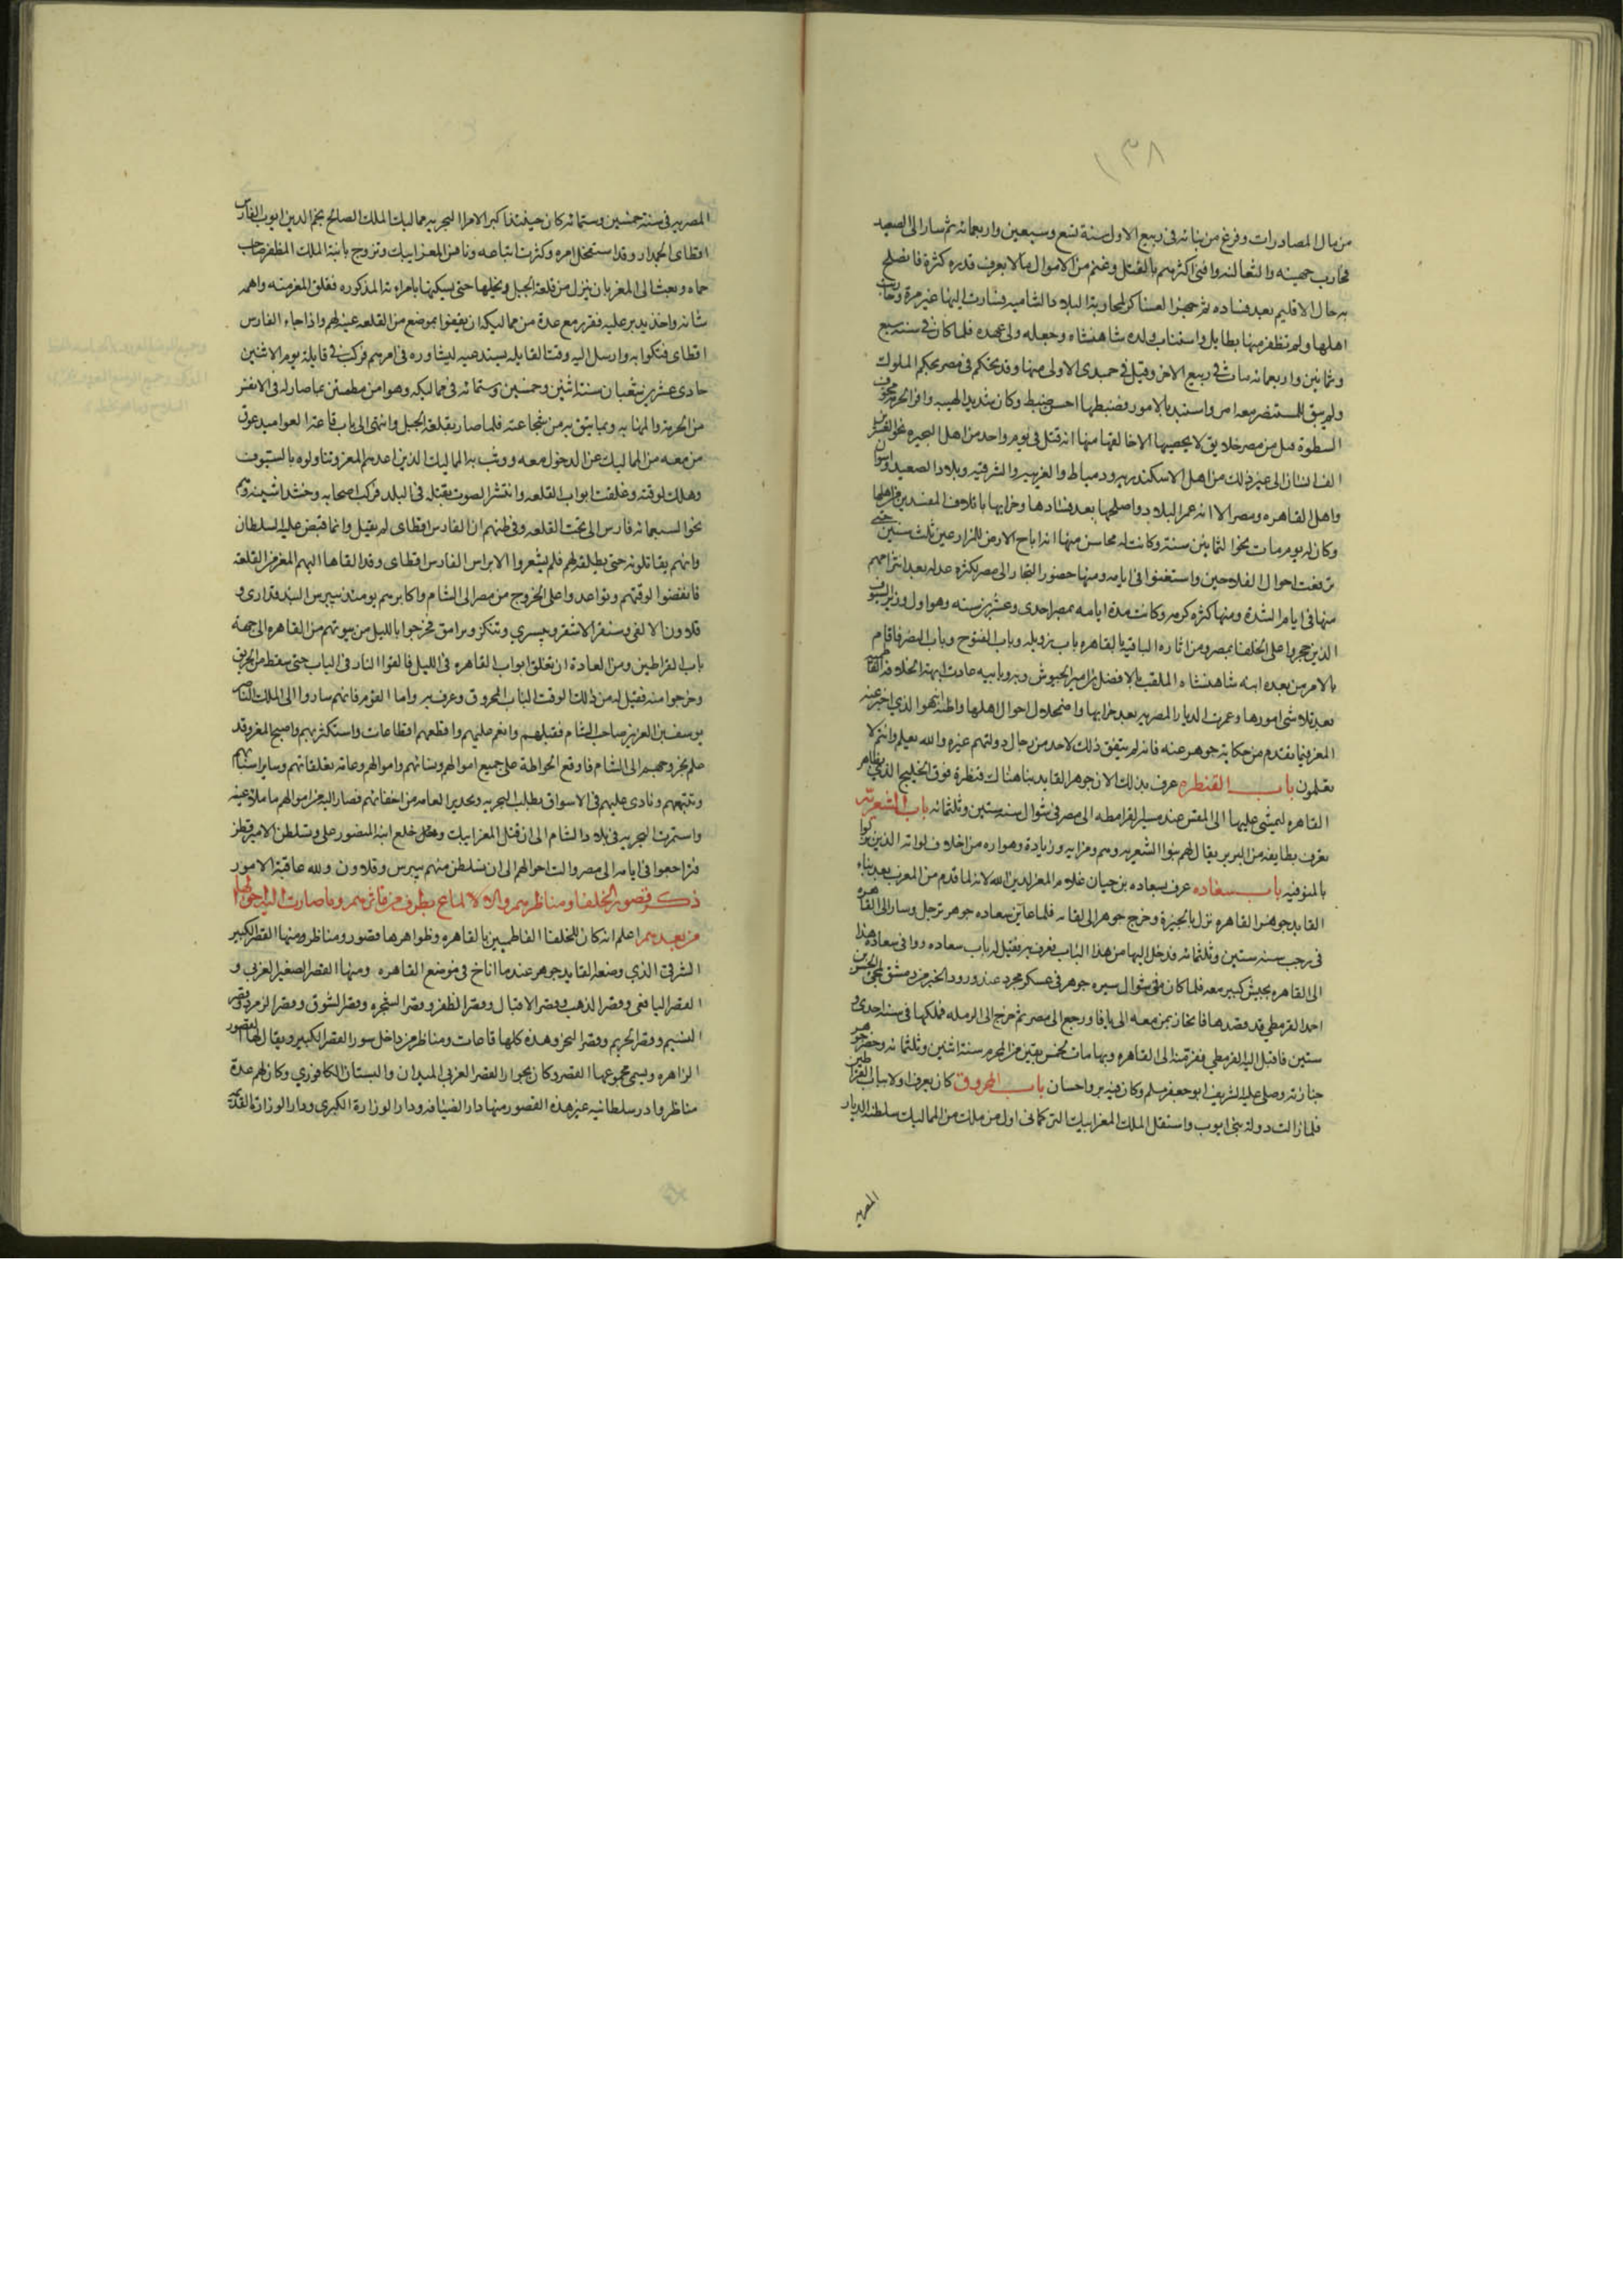 ١٣٨
من مال المصادرات وفرغ من بنائه فى ربيع الاول سنة تسع وسبعين واربعمائه ثم سار الى الصعيد
فحارب جهينه والثعالبه وافنى اكثرهم بالقتل وغنم من الاموال ما لا يعرف قدره كثرة فانصلح
به حال الاقليم بعد فساده ثم جهز العساكر لمحاربة البلاد الشاميه فسارت اليها غير مرة وحارب
اهلها ولم تظفر منها بطايل واستناب ولده شاهنشاه وجعله ولى عهده فلما كان فى سنه سبع
وثمانين واربعمائه مات فى ربيع الاخر وقيل فى جمدى الاولى منها وقد تحكم فى مصر تحكم الملوك
ولم يبق للمستنصر معه امر واستبد بالامور فضبطها احسن ضبط وكان شديد الهيبه وافر الحرمه مخوف
السطوة قتل من مصر خلايق لا يحصيها الا خالقها منها انه قتل فى يوم واحد من اهل البحيره نحو العشرين
الف انسان الى غير ذلك من اهل الاسكندريه ودمياط والغربيه والشرقيه وبلاد الصعيد واسوان
واهل القاهره ومصر الا انه عمر البلاد واصلحها بعد فسادها وخرابها باتلاف المفسدين من اهلها
وكان له يوم مات نحو الثمانين سنة وكانت له محاسن منها انه اباح الارض للزارعين ثلث سنين حتى
ترفهت احوال الفلاحين واستغنوا فى ايامه ومنها حضور التجار الى مصر لكثره عدله بعد انتزاحهم
منها فى ايام الشدة ومنها كثره كرمه وكانت مدة ايامه بمصر احدى وعشرين سنه وهو اول وزراء السيوف
الذين حجروا على الخلفا بمصر ومن اثاره الباقيه بالقاهره باب زويله وباب الفتوح وباب النصر فاقام
بالامر من بعده ابنه شاهنشاه الملقب بالافضل بن امير الجيوش وبه وبابيه عادت ابهة الخلافه الفاطميه
بعد تلاشى امورها وعمرت الديار المصريه بعد خرابها واضمحلال احوال اهلها واظنه هو الذى اخبر عنه
المعز فيما تقدم من حكاية جوهر عنه فانه لم يتفق ذلك لاحد من رجال دولتهم غيره والله يعلم وانتم لا
تعلمون باب القنطره عرف بذلك لان جوهر القايد بنا هناك قنطرة فوق الخليج الذى بظاهر
القاهره ليمشى عليها الى المقس عند مسير القرامطه الى مصر فى شوال سنه ستين وثلثمائه باب الشعريه
يعرف بطايفه من البربر يقال لهم بنوا الشعريه وهم ومزاته وزيادة وهواره من اخلاف لواته الذين نزلوا
بالمنوفيه باب سعاده عرف بسعاده بن حيان غلام المعز لدين الله لانه لما قدم من المغرب بعد بناء
القايد جوهر القاهره نزل بالجيزة وخرج جوهر الى لقائه فلما عاين سعاده جوهر ترجل وسار الى القاهره
فى رجب سنه ستين وثلثمائه فدخل اليها من هذا الباب فعرف به فقيل له باب سعاده ووافى سعاده هذا
الى القاهره بجيش كبير معه فلما كان فى شوال سيره جوهر فى عسكر مجرد عند ورود الخبر من دمشق بمجئ الحسن بن
احمد القرمطى قد قصدها فانحاز بمن معه الى يافا ورجع الى مصر ثم خرج الى الرمله فملكها فى سنة احدى و
ستين فاقبل اليه القرمطى ففر منه الى القاهره وبها مات لخمس بقين من المحرم سنة اثنين وثلثمائه وحضر جوهر
جنازته وصلى عليه الشريف ابو جعفر مسلم وكان فيه بر واحسان باب المحروق كان يعرف اولا بباب القراطين
فلما زالت دولة بنى ايوب واستقل الملك المعز ايبك التركمانى اول من ملك من المماليك سلطنة الديار
المصريه
المصريه فى سنة خمسين وستمائه كان حينئذ اكبر الامرا البحريه مماليك الملك الصالح نجم الدين ايوب الفارس
اقطاى الجمدار وقد استفحل امره وكثرت اتباعه ونافس المعز ايبك وتزوج بابنة الملك المظفر صاحب
حماه وبعث الى المعز بان ينزل من قلعة الجبل ويخليها حتى يسكنها بامراته المذكوره فقلق المعز منه واهمه
شانه واخذ يدبر عليه فقرر مع عدة من مماليكه ان يقفوا بموضع من القلعه عينه لهم واذا جاء الفارس
اقطاى فتكوا به وارسل اليه وقت القايله يستدعيه ليشاوره فى امر مهم فركب فى قايلة يوم الاثنين
حادى عشرين شعبان سنة اثنين وخمسين وستمائه فى مماليكه وهو امن مطمئن بما صار له فى الانفس
من الحرمه والمهابه وبما يثق به من شجاعته فلما صار بقلعة الجبل وانتهى الى باب قاعة العواميد عوق
من معه من المماليك عن الدخول معه ووثب به المماليك الذين اعدهم المعز وتناولوه بالسيوف
وهلك لوقته وغلقت ابواب القلعه وانتشر الصوت بقتله فى البلد فركب اصحابه وخشداشيته وهم
نحو السبعمائه فارس الى تحت القلعه وفى ظنهم ان الفارس اقطاى لم يقتل وانما قبض عليه السلطان
وانهم يقاتلونه حتى يطلقه لهم فلم يشعروا الا براس الفارس اقطاى وقد القاها اليهم المعز من القلعه
فانفضوا لوقتهم وتواعدوا على الخروج من مصر الى الشام واكابرهم يومئذ بيبرس البندقدارى و
قلاون الالفى وسنقر الاشقر وبيسرى وتنكز وبرامق فخرجوا بالليل من بيوتهم من القاهره الى جهة
باب القراطين ومن العادة ان تغلق ابواب القاهره فى الليل فالقوا النار فى الباب حتى سقط من الحريق
وخرجوا منه فقيل له من ذلك الوقت الباب المحروق وعرف به واما القوم فانهم ساروا الى الملك الناصر
يوسف بن العزيز صاحب الشام فقبلهم وانعم عليهم واقطعهم اقطاعات واستكثر بهم واصبح المعز وقد
علم بخروجهم الى الشام فاوقع الحوطة على جميع اموالهم ونسائهم واموالهم وعامة تعلقاتهم وساير اسبابهم
وتتبعهم ونادى عليهم فى الاسواق بطلب البحريه وتحذير العامه من اخفائهم فصار اليه من اموالهم ما ملا عينه
واستمرت البحريه فى بلاد الشام الى ان قتل المعز ايبك وخلع ابنه المنصور على وتسلطن الامير قطز
فتراجعوا فى ايامه الى مصر والت احوالهم الى ان تسلطن منهم بيبرس وقلاون ولله عاقبة الامور
ذكر قصور الخلفا ومناظرهم والالماع بطرف من ماثرهم وما صارت اليه احوالها
من بعدهم اعلم انه كان للخلفا الفاطميين بالقاهره وظواهرها قصور ومناظر ومنها القصر الكبير
الشرقى الذى وضعه القايد جوهر عندما اناخ فى موضع القاهره ومنها القصر الصغير الغربى و
القصر اليافعى وقصر الذهب وقصر الاقيال وقصر الظفر وقصر الشجره وقصر الشوق وقصر الزمرد وقصر
النسيم وقصر الحريم وقصر البحر وهذه كلها قاعات ومناظر من داخل سور القصر الكبير ويقال لها القصور
الزاهره ويسمى مجموعها القصر وكان بجوار القصر الغربى الميدان والبستان الكافورى وكان لهم عدة
مناظر وادر سلطانيه غير هذه القصور منها دار الضيافه ودار الوزارة الكبرى ودار الوزارة القديمة